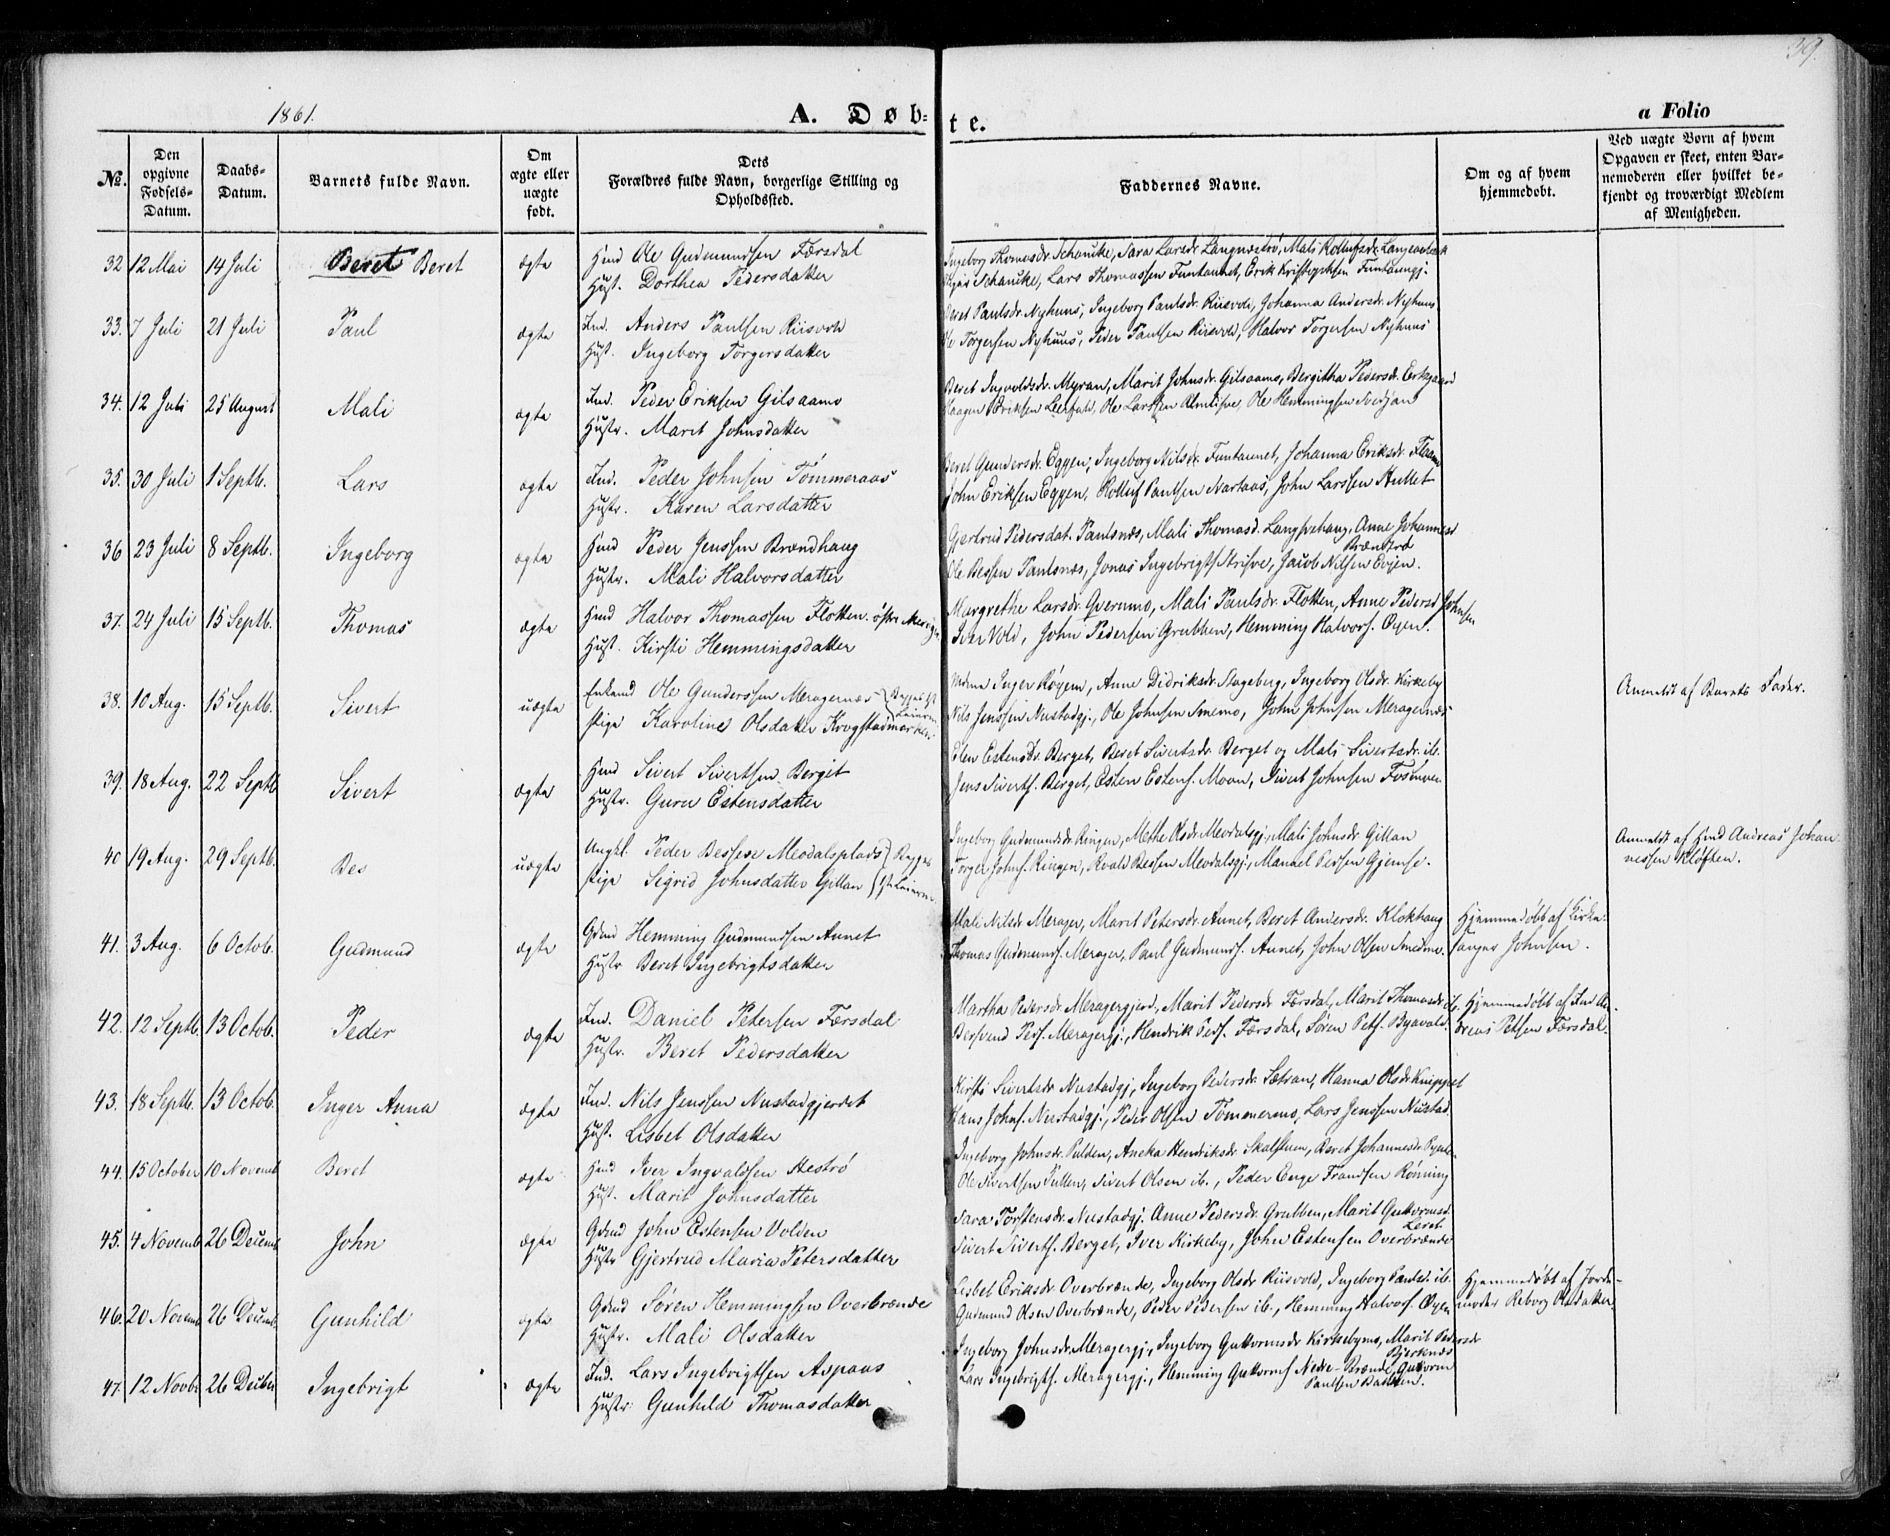 39.
1861.
A. Døb=te.
a Folio
No.
Den opgivne Fødsels-Datum.
Daabs-Datum.
Barnets fulde Navn.
Om ægte eller uægte født.
Dets Forældres fulde Navn, borgerlige Stilling og Opholdssted.
Faddernes Navne.
Om og af hvem hjemmedøbt.
Ved uægte Børn af hvem Opgaven er skeet, enten Barnemoderen eller hvilket bekjendt og troværdigt Medlem af Menigheden.
32 12 Mai 14 Juli Beret Beret ægte Hmd Ole Gudmundsen Færsdal
Hust. Dorthea Pedersdatter
Ingeborg Thomasdr. Schancke, Sara Larsdr. Langnæstrø, Mali
Schancke, Lars Thomassen Funtaunet, Erik
33. 7 Juli 21 Juli Paul ægte Ind. Anders Paulsen Riisvold
Hust. Ingeborg Torgersdatter
Beret Paulsdr. Nyhuus, Ingeborg Paulsdr. Riisvold, Johanna Andersdr. Nyhuus
Ole Torgersen Nyhuus, Peder Paulsen Riisvold, Halvor Torgersen Nyhuus
34. 12 Juli 25 August Mali ægte Ind. Peder Eriksen Gilsaamo
Hustr. Marit Johnsdatter
Beret Ingvoldsdr. Myran, Marit Johnsdr. Gilsaamo, Bergitha Pedersdr.
Haagen Eriksen Leerfald, Ole Larssen Almlisve, Ole Hemmingsen Svedjan
35. 30 Juli 1 Septb. Lars ægte Ind. Peder Johnsen Tømmeraas
Hustr. Karen Larsdatter
Beret Gundersdr. Eggen, Ingeborg Nilsdr. Funtaunet, Johanna Eriksdr.
John Eriksen Eggen, Rolluf Paulsen Nartaas, John Larssen Hullet
36 23 Juli 8 Septb. Ingeborg ægte Hmd Peder Jenssen Brændhaug
Hustr. Mali Halvorsdatter
Gjertrud Pedersdat. Paulsnæs, Mali Thomasd. Langsvehaug, Anne Johannesd
Ole Bessen Paulsnæs, Jonas Ingebrigts. Strisve, Jacob Nilsen Evjen.
37. 24 Juli 15 Septb. Thomas ægte Hmd Halvor Thomassen Flotten
Hust. Kirsti Hemmingsdatter
Margrethe Larsdr. Qvernmo, Mali Paulsdr. Flotten, Anne Pedersd Johnsen
Iver Vold, John Pedersen Grubben, Hemming Halvors. Øyen.
38. 10 Aug. 15 Septb. Sivert uægte Enkemd Ole Gunderssen Meragernæs
Pige Karoline Olsdatter Krogstadmarken
Inger Røyem, Anne Didriksdr. Stageberg, Ingeborg Olsdr. Kirkeby
Nils Jenssen Nustadgj., Ole Johnsen Smemo, John Johnsen Meragernæs
Anmeldt af Barnets Fader.
39. 18 Aug. 22 Septb Sivert ægte Hmd Sivert Sivertsen Berget
Hustr. Guru Estensdatter
Elen Estensdr. Berget, Beret Sivertsdr. Berget og Mali Sivertsdr. ib.
Jens Siverts. Berget, Esten Estens. Moan, Sivert Johnsen Fosmoen
40 19 Aug. 29 Septb. Bes uægte Ungkl. Peder Bessen Meodalsplads
Pige Sigrid Johnsdatter Gillan
Ingeborg Gudmundsdr. Ringen, Mette Olsdr. Meodalsgj., Mali Johnsdr. Gillan
Torger Johns. Ringen, Roald Bessen Meodalsgj., Manuel Pedsen Gjemse.
Anmeldt af Hmd Andreas Johannessen Kløften.
41. 3 Aug. 6 Octob. Gudmund ægte Gdmd Hemming Gudmundsen Aunet
Hustr Beret Ingebrigtsdatter
Mali Nilsdr Merager, Marit Petersdr. Aunet, Beret Andersdr. Klokhaug
Thomas Gudmunds. Merager, Paul Gudmunds. Aunet, John Olsen Smedmo.
Hjemmedøbt af Kirkesanger Johnsen.
42. 12 Septb. 13 Octob. Peder ægte Ind. Daniel Petersen Færsdal
Hustr. Beret Pedersdatter
Martha Pedersdr Meragergjerd, Marit Pedersdr Færsdal, Marit Thomasdr. ib.
Bersvend Peds. Meragergj., Hendrik Peds. Færsdal, Søren Pets. Byavold.
Hjemmedøbt af Ind Andreas Petsen Færsdal.
43. 18 Septb. 13 Octob. Inger Anna ægte Ind. Nils Jenssen Nustadgjerdet
Hust. Lisbet Olsdatter
Kirsti Sivertsdr Nustadgj., Ingeborg Pedersdr. Sætran, Hanna Olsdr. Knippet
Hans Johns. Nustadgj., Peder Olsen Tømmermo, Lars Jenssen Nustad.
44. 15 October 10 Novemb Beret ægte Hmd Iver Ingvaldsen Hestrø
Hust. Marit Johnsdatter
Ingeborg Johnsdr. Pulden, Aneka Hendriksdr. Skalstuen, Beret Johannesdr
Ole Sivertsen Pullen, Sivert Olsen ib., Peder Enge Frandsen Rønning
45. 4 Novemb 26 Decemb John ægte Gdmd John Estensen Volden
Hustr Gjertrud Maria Petersdatter
Sara Torstensdr. Nustadgj. Anne Pedersdr. Grubben, Marit Guttormsd. Leret
Sivert Siverts. Berget, Iver Kirkeby, John Estensen Overbrænde
46. 20 Novemb 26 Decemb. Gunhild ægte Gdmd Søren Hemmingsen Overbrænde
Hustr. Mali Olsdatter
Lisbet Eriksdr Overbrænde, Ingeborg Olsdr Riisvold, Ingeborg Paulsd. ib.
Gudmund Olsen Overbrænde, Peder Pedersen ib., Hemming Halvors. Øyen
Hjemmedøbt af Jordemoder Reborg Olsdatter
47. 12 Novbr 26 Decbr Ingebrigt ægte Ind. Lars Ingebrigtsen Aspaas
Hustr: Gunhild Thomasdatter
Ingeborg Johnsdr. Meragergj., Ingeborg Guttormsdr Kirkebymo, Marit Pedersdr Bjerknes
Lars Ingebrigts. Meragergj., Hemming Guttorms Nedre-Brænde, Guttorm Paulsen